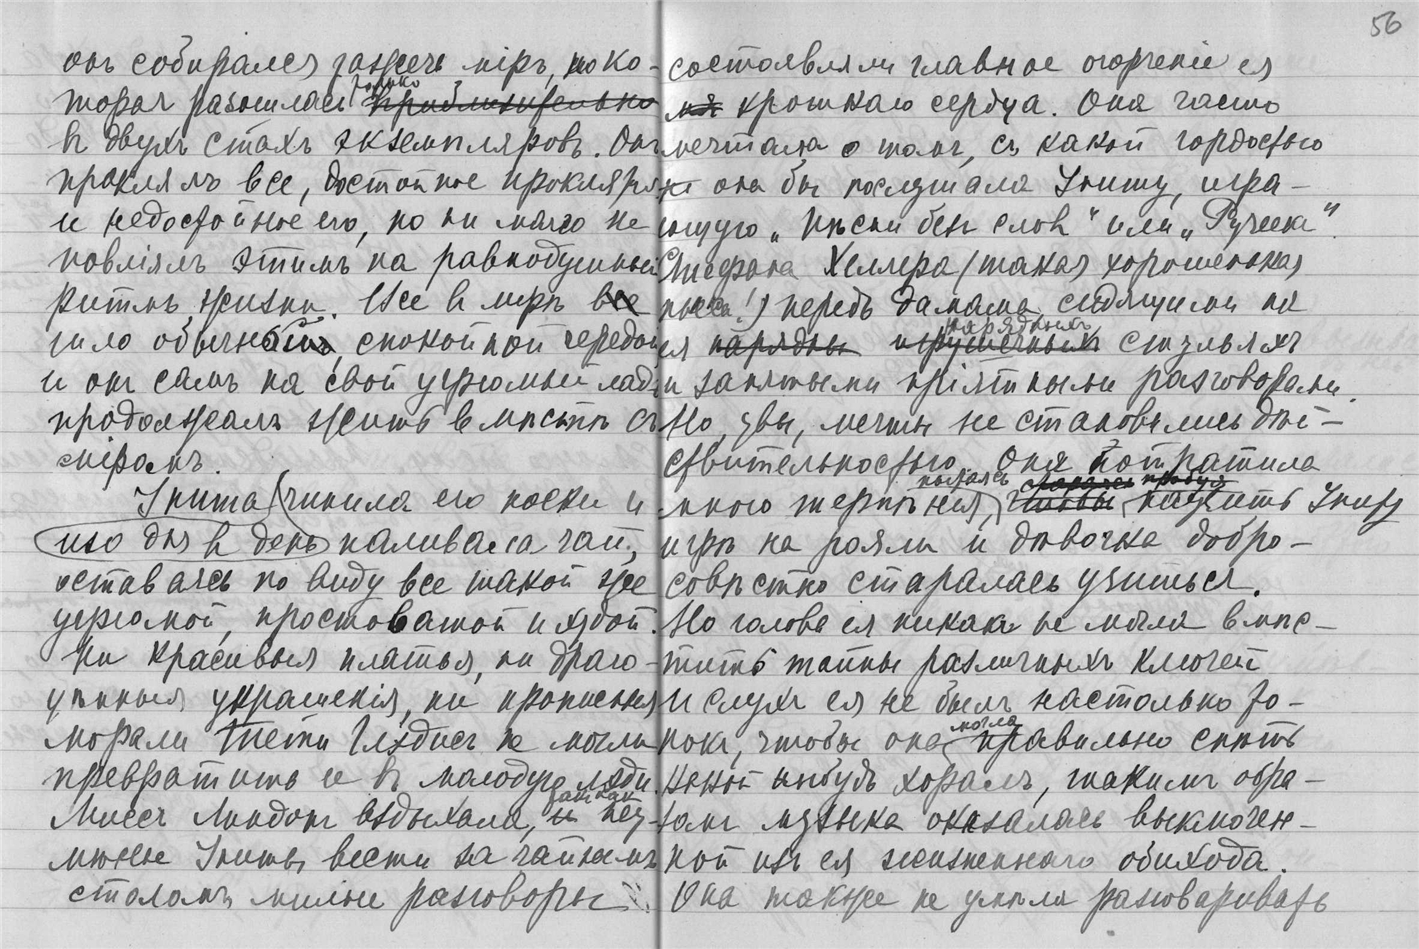 онъ собирался зажечь міръ, но ко-
торая разошлась только приблизительно
въ двухъ стахъ экземпляровъ. Онъ
проклялъ все, достойное проклятія
и недостойное его, но ни мало не
повліялъ этимъ на равнодушный
ритмъ жизни. Все въ мірѣ все
шло обычной, спокойной чередой
и онъ самъ на свой угрюмый ладъ
продолжалъ жить вмѣстѣ съ
міромъ.
Унита чинила его носки и
изо дня въ день наливала чай,
оставаясь по виду все такой же
угрюмой, простоватой и худой.
Ни красивыя платья, ни драго-
цѣнныя украшенія, ни прописныя
морали тети Глэдисъ не могли
превратить ее въ молодую лэди.
Миссъ Линдонъ вздыхала, такъ какъ неу-
мѣнье Униты вести за чайнымъ
столомъ милые разговоры
56
составляли главное огорченіе ея
кроткаго сердца. Она часто
мечтала о томъ, съ какой гордостью
она бы послушала Униту, игра-
ющую „Пѣсни безъ словъ“ или „Ручеекъ“
Стефана Хеллера (такая хорошенькая
пьеса!) передъ дамами, сидящими на
ея нарядны нарядныхъ игрушечныхъ стульяхъ
и занятыми пріятными разговорами.
Но, увы, мечты не становились дѣй-
ствительностью. Она потратила
много терпѣнія, пытаясь стараясь пробуя чтобы научить Униту
игрѣ на рояли и дѣвочка добро-
совѣстно старалась учиться.
Но голова ея никакъ не могла вмѣс-
тить тайны различныхъ ключей
и слухъ ея не былъ настолько то-
нокъ, чтобы она могла правильно спѣть
какой нибудь хоралъ, такимъ обра-
зомъ музыка оказалась выключен-
ной изъ ея жизненнаго обихода.
Она также не умѣла разговаривать